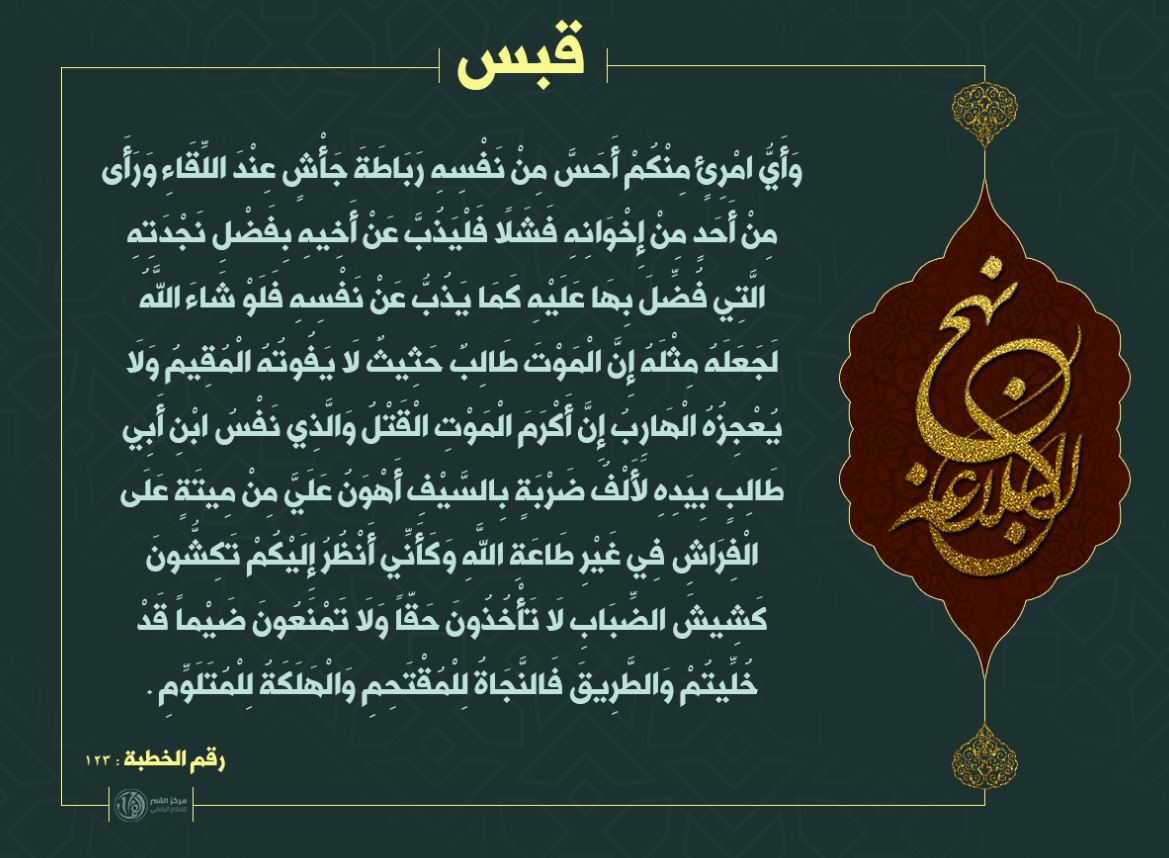 قبس
وَأَيُّ امْرِئٍ مِنْكُمْ أَحَسَّ مِنْ نَفْسِهِ رَبَاطَةَ جَأْشٍ عِنْدَ اللِّقَاءِ وَرَأَى
مِنْ أَحَدٍ مِنْ إِخْوَانِهِ فَشَلًا فَلْيَذُبَّ عَنْ أَخِيهِ بِفَضْلِ نَجْدَتِهِ
الَّتِي فُضِّلَ بِهَا عَلَيْهِ كَمَا يَذُبُّ عَنْ نَفْسِهِ فَلَوْ شَاءَ اللَّهُ
لَجَعَلَهُ مِثْلَهُ إِنَّ الْمَوْتَ طَالِبٌ حَثِيثٌ لَا يَفُوتُهُ الْمُقِيمُ وَلَا
يُعْجِزُهُ الْهَارِبُ إِنَّ أَكْرَمَ الْمَوْتِ الْقَتْلُ وَالَّذِي نَفْسُ ابْنِ أَبِي
طَالِبٍ بِيَدِهِ لَأَلْفُ ضَرْبَةٍ بِالسَّيْفِ أَهْوَنُ عَلَيَّ مِنْ مِيتَةٍ عَلَى
الْفِرَاشِ فِي غَيْرِ طَاعَةِ اللَّهِ وَكَأَنِّي أَنْظُرُ إِلَيْكُمْ تَكِشُّونَ
كَشِيشَ الضِّبَابِ لَا تَأْخُذُونَ حَقّاً وَلَا تَمْنَعُونَ ضَيْماً قَدْ
خُلِّيتُمْ وَالطَّرِيقَ فَالنَّجَاةُ لِلْمُقْتَحِمِ وَالْهَلَكَةُ لِلْمُتَلَوِّمِ .
نهج
البلاغة
رقم الخطبة : ١٢٣
مركز القمر
للاعلام الرقمي